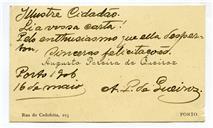 Illustre Cidadão.
Li a vossa carta!
Pelo enthusiasmo que ella desper-
tou,
Sinceras felicitações.
Augusto Pereira de Queiroz
Porto 906
16 de maio A. P. de Queiroz
Rua de Cedofeita, PORTO.